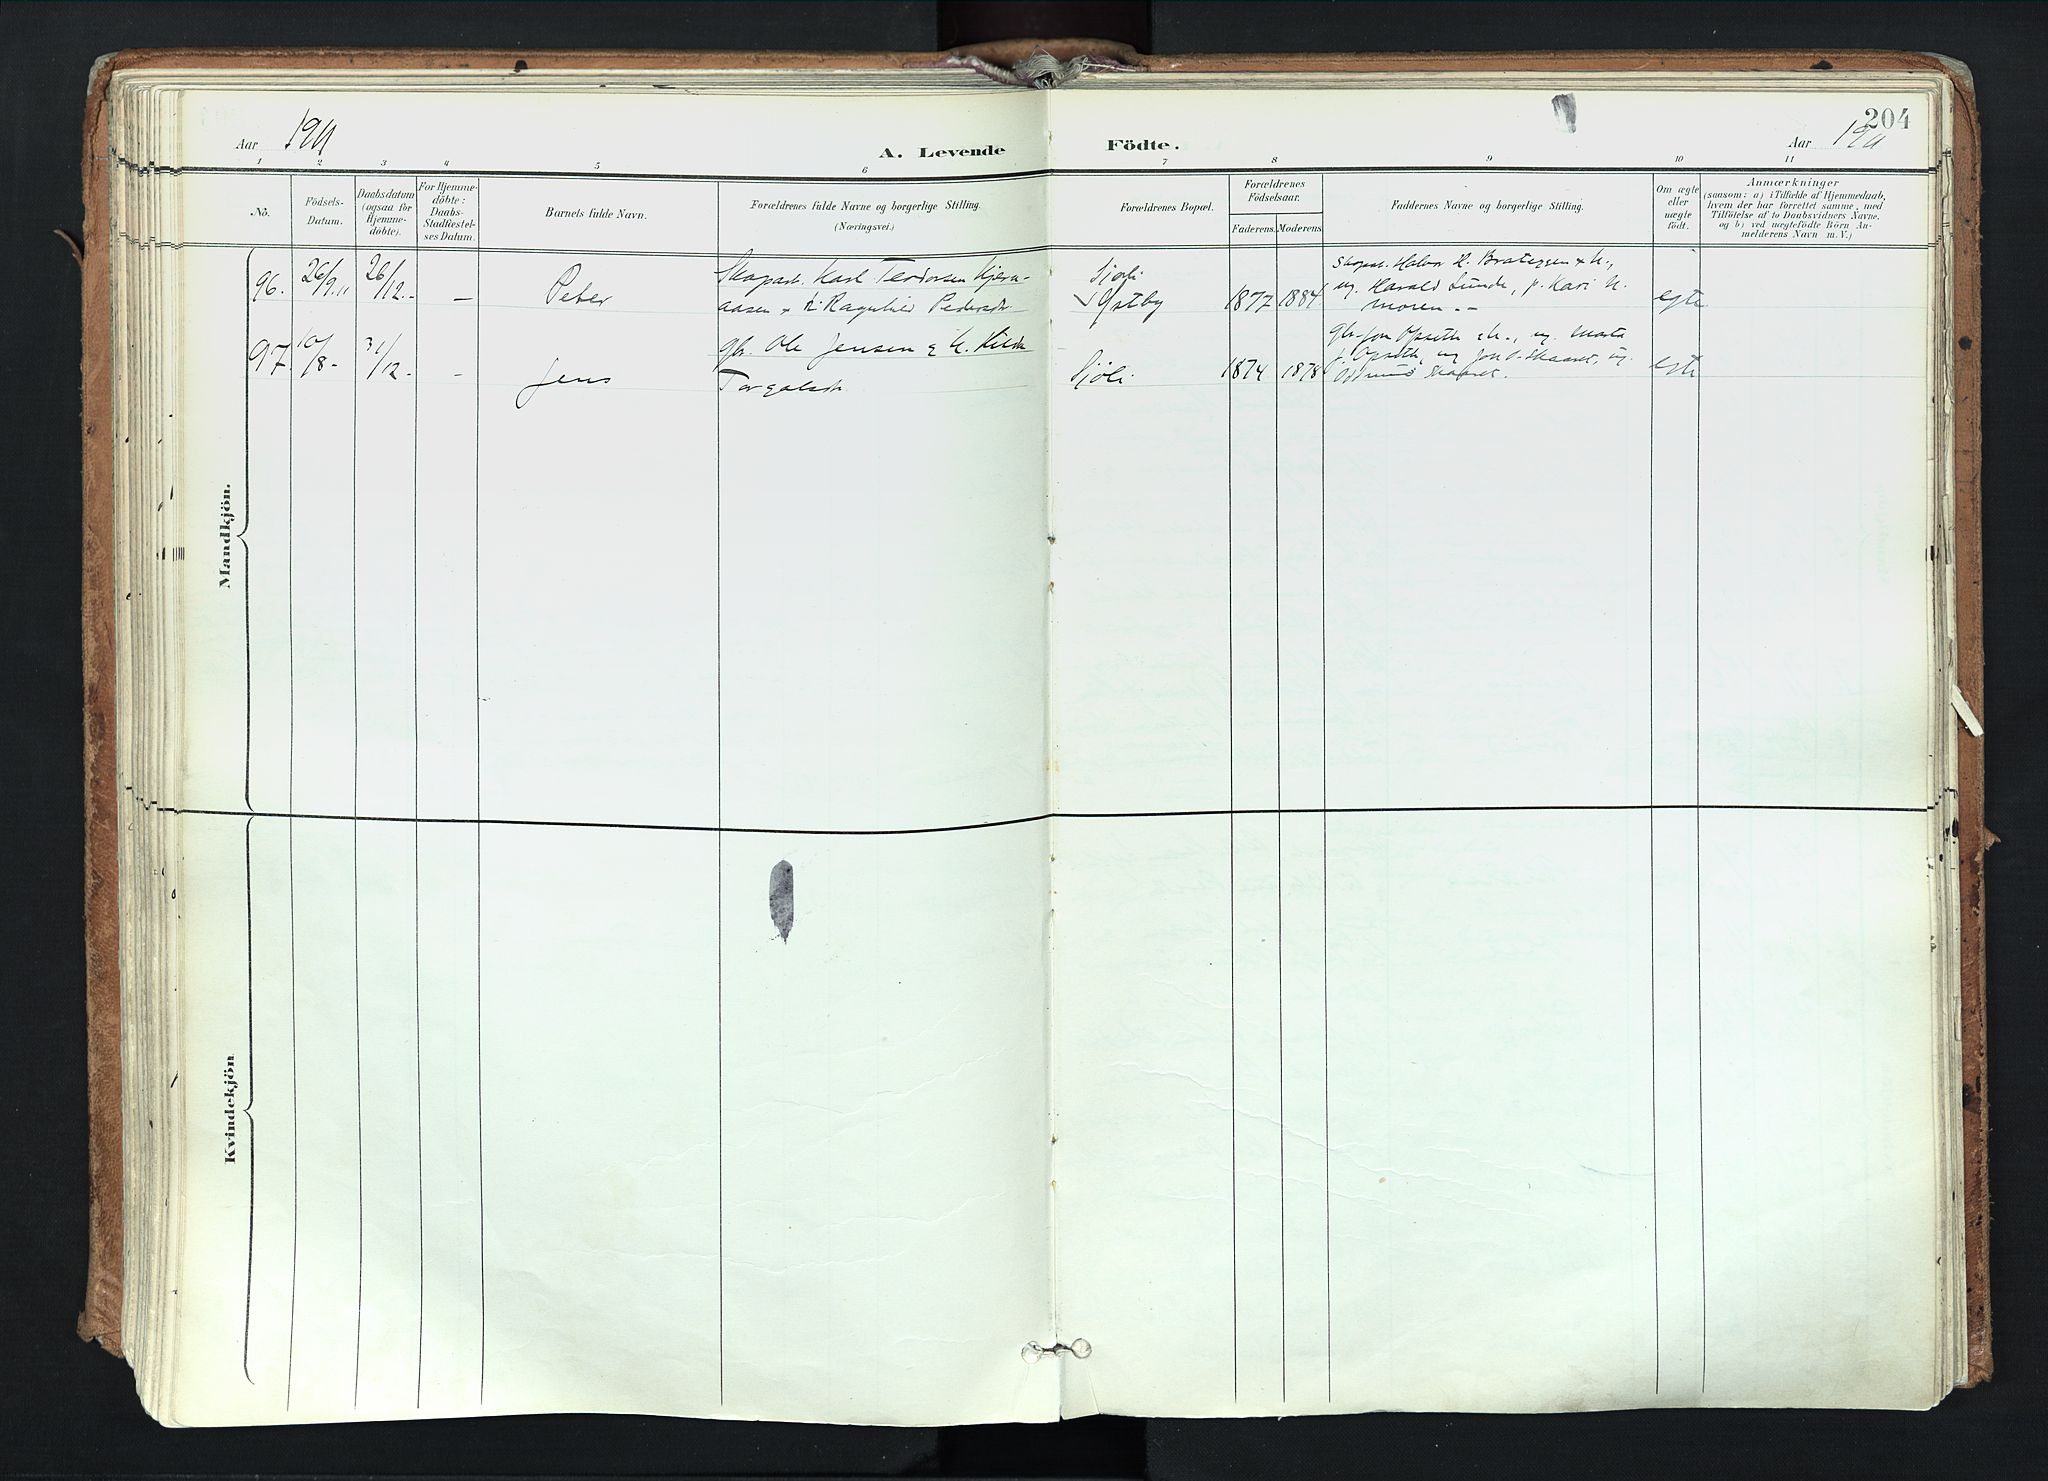 204
Aar 1911
A. Levende Födte.
Aar 1911
1 2 3 4 5 6 7 8 9 10 11
No.
Födsels-
Datum.
Daabsdatum
(ogsaa for
Hjemme-
döbte).
For Hjemme-
döbte:
Daabs-
Stadfæstel-
ses Datum.
Barnets fulde Navn.
Forældrenes fulde Navne og borgerlige Stilling.
(Næringsvei.)
Forældrenes Bopæl.
Forældrenes
Födselsaar.
Faderens. Moderens.
Faddernes Navne og borgerlige Stilling.
Om ægte
eller
uægte
födt.
Anmærkninger
(saasom: a) i Tilfælde af Hjemmedaab,
hvem der har forrettet samme, med
Tilföielse af to Daabsvidners Navne,
og b) ved uægtefödte Börn An-
melderens Navn m. V.)
Mandkjön.
96. 26/9 11 26/12 - – Peter
Skoparb. Karl Teodorsen Kjern-
aasen & k. Ragnhild Pedersdtr
Sjøli
Østby
1877 1884
Skoparb. Halvor H. Bratengen & k.,
ug. Harald Lunde, p. Kari
moren --
egte
97. 10/8 - 31/12 - - Jens
gbr. Ole Jensen & k. Kilda
Torgalsdtr.
Sjøli
1874 1878
gbr. Jon Opseth & k., ug. Marta
p. Opseth, ug Jon O. Skaaret, ug.
Skaaret.
egte
Kvindekjön